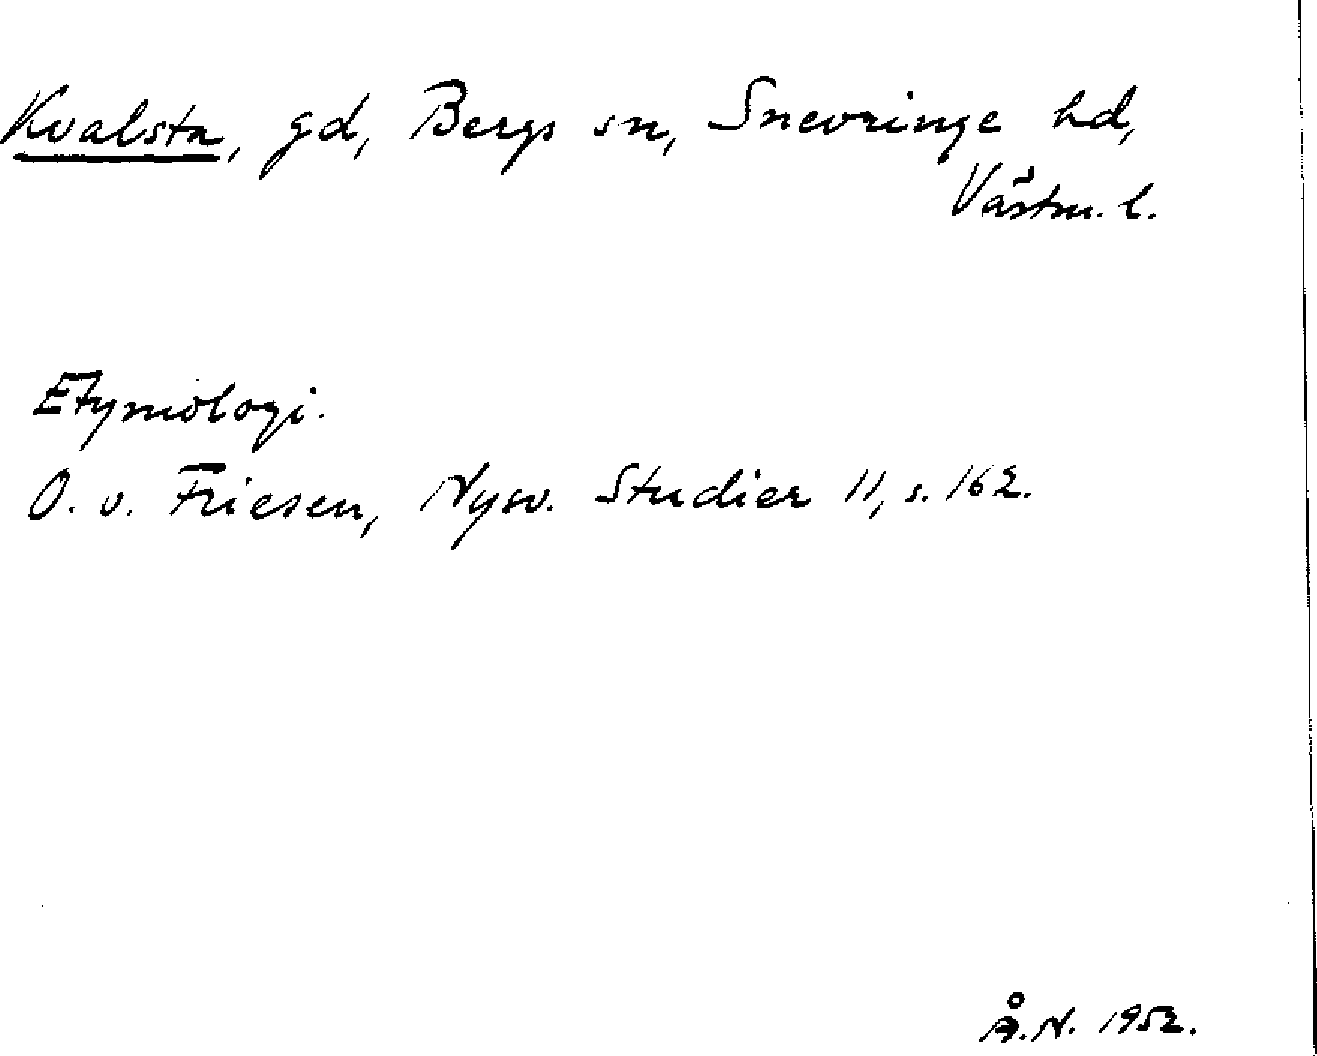 Kvalsta, gd, Bergs sn, Snevringe hd,
Västm. l.
Etymologi.
O. v. Friesen, Nysv. Studier 11, s. 162.
Å.N. 1952.